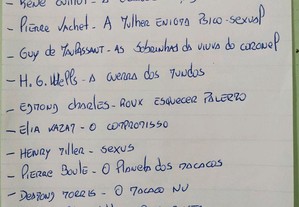 - Pierre Vachet - A Mulher Enigma Psico-Sexual
- Guy de Maupassant - As Sobrinhas da Viuva do Coronel
- H. G. Wells - A Guerra dos Mundos
- Edmond Charles-Roux Esquecer Palermo
- Elia Kazan - O Compromisso
- Henry Miller - Sexus
- Pierre Boule - O Planeta dos Macacos
- Desmond Morris - O Macaco Nu